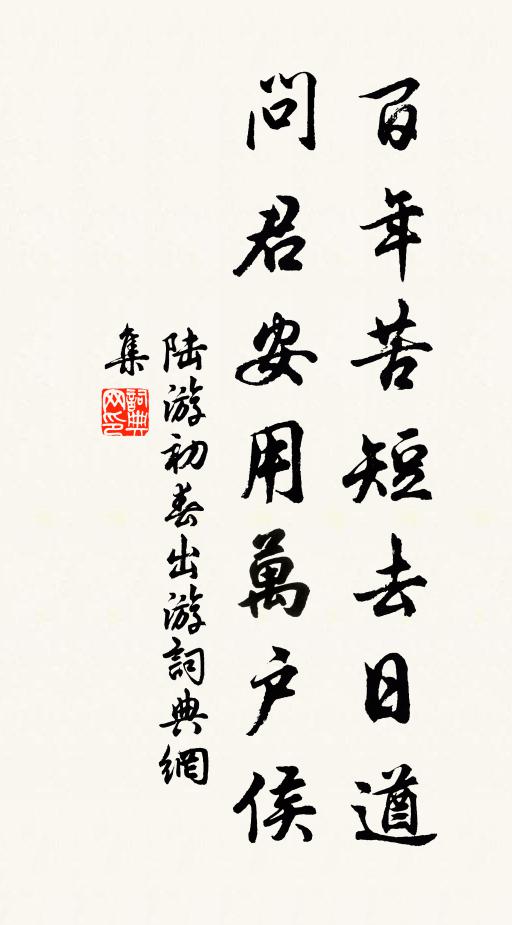 百年苦短去日遒
問君安用萬户侯
陸游初春出游詞典網
集
詞典
网印